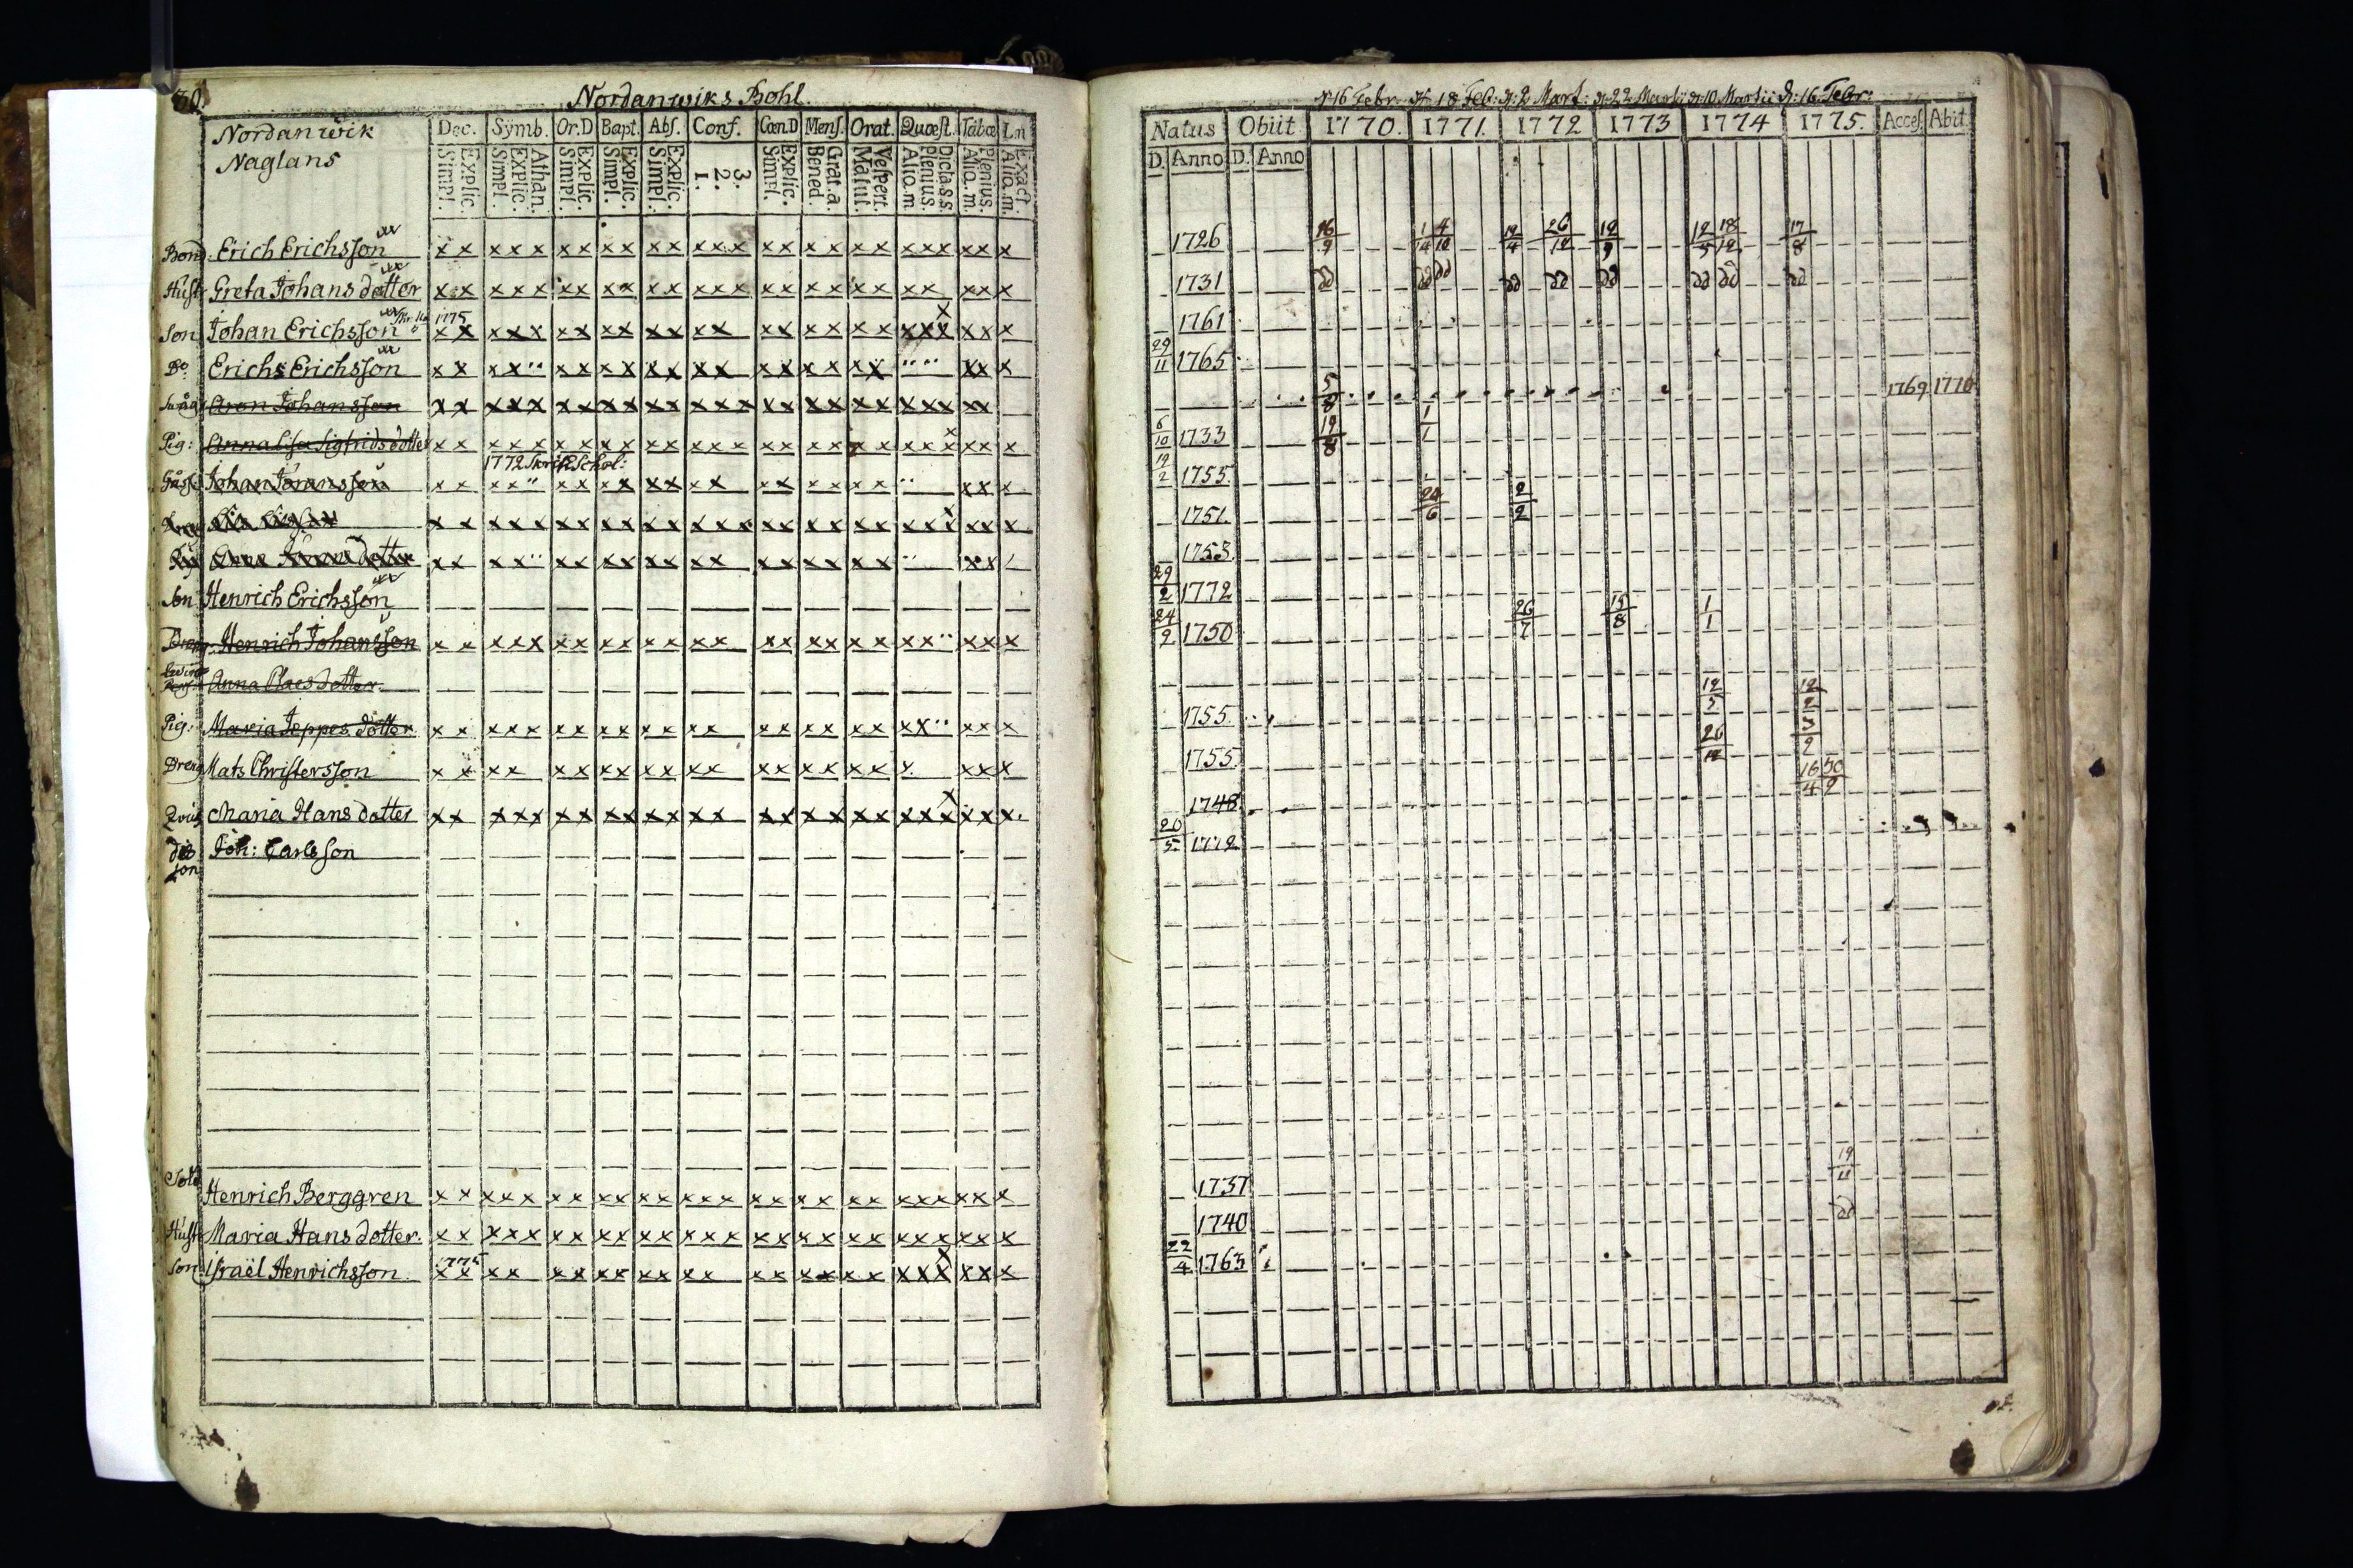 30.
Nordanwiks Bohl.
Nordanwik
Naglans
Dec. Symb. Or.D Bapt. Abs. Conf. Cœn.D Mens. Orat. Quæst. Tabœ L.n
Explic. Simpl. Athan. Explic. Simpl. Explic. Simpl. Explic. Simpl. Explic. Simpl. 3. 2. 1. Explic. Simpl. Grat.a. Bened. Vespert. Matut. Dicta.s.s plenius. Aliq.m Plenius. Aliq.m. Exact. Aliq.m.
Bond. Erich Erichsson x x x x x x x x x x x x x x x x x x x x x x x x x x
Hust. Greta Johans dotter x x x x x x x x x x x x x x x x x x x x x x x x x
Son Johan Erichsson 1775 x x x x x x x x x x x x x x x x x x x x x x x x x x
Do. Erichs Erichsson x x x x x x x x x x x x x x x x x x x x x x
Swåg Aron Johansson x x x x x x x x x x x x x x x x x x x x x x x x x
Pig: Anna Lisa Sigfrids dotter x x x x x x x x x x x x x x x x x x x x x x x x x x x
1772
Johan Jöransson x x x x x x x x x x x x x x x x x x x x x x
x x x x x x x x x x x x x x x x x x x x x x x x x x x
dotter x x x x x x x x x x x x x x x x x x x x x
Son Henrich Erichsson
Dreng Henrich Johansson x x x x x x x x x x x x x x x x x x x x x x x x
Anna Claes dotter
Pig: Maria Jeppes dotter x x x x x x x x x x x x x x x x x x x x x x x x
Dreng Mats Christersson x x x x x x x x x x x x x x x x x x x x x x
Maria Hans dotter x x x x x x x x x x x x x x x x x x x x x x x x x x
Joh: Carlsson
son
Henrich Berggren x x x x x x x x x x x x x x x x x x x x x x x x x x
Hust Maria Hans dotter. x x x x x x x x x x x x x x x x x x x x x x x x x x
1775
Son Israël Henrichsson x x x x x x x x x x x x x x x x x x x x x x x x x
16 Febr. 18 Feb: 2 Mart: 22 Martii 10 Martii 16 Febr:
Natus Obiit. 1770. 1771. 1772 1773 1774 1775. Acces. Abit.
D. Anno D. Anno
1726 16/9 1/14 4/10 12/4 26/12 12/9 12/5 18/12 17/8
1731 dd dd dd dd dd dd dd dd dd
1761
29/11 1765
5/8 1769 1770
6/10 1733 19/8 1/1
19/2 1755.
1751. 24/6 2/2
1753.
29/2 1772
24/2 1750 26/7 15/8 1/1
1755 12/5 12/2
1755. 26/12 3/2
1748. 16/4 50/2
20/5 1772
1737 19/11
1740 dd
22/4 1763